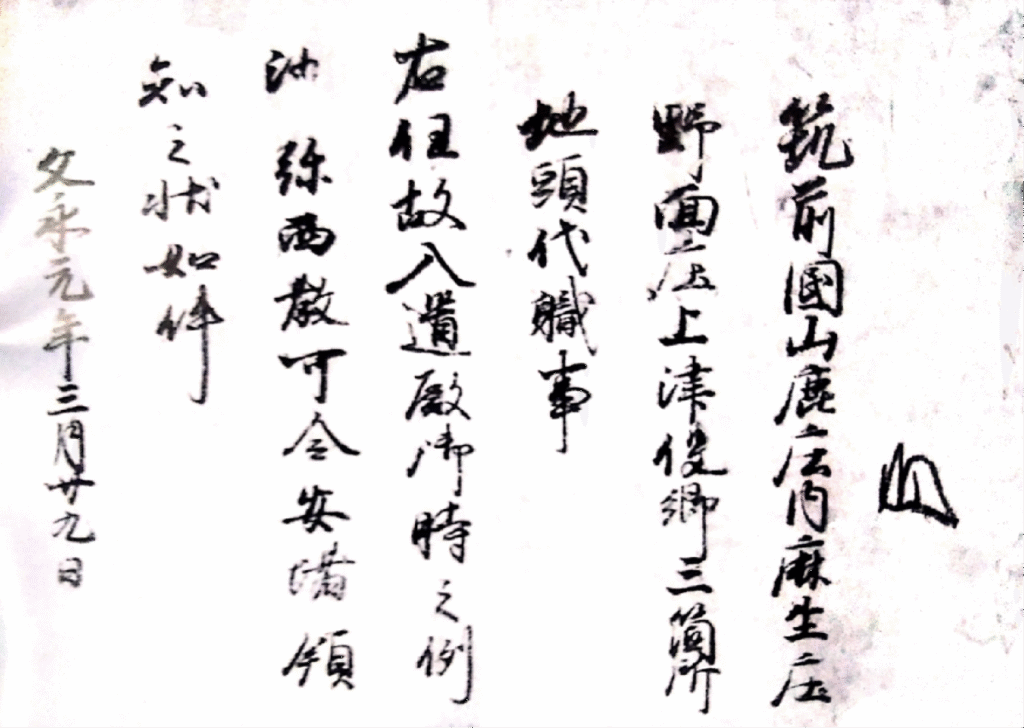 筑前國山鹿庄内麻生庄
野面庄上津役郷三箇所
地頭代職事
右任故入道殿御時之例
沙弥西教可令安堵領
知之状如件
文永元年三月廿九日